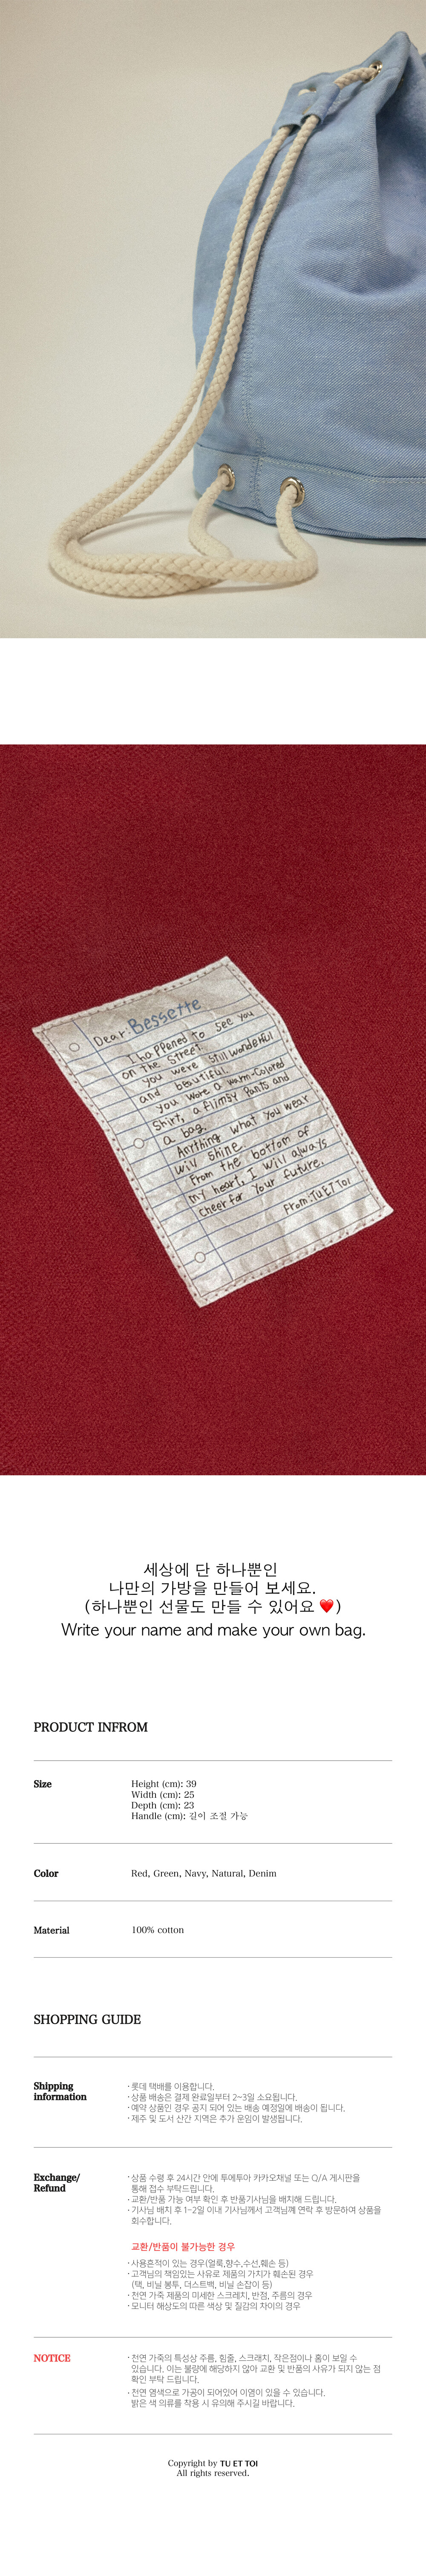 Dear. Bessette
I happened to see you
on the street.
you were still wonderful
and beautiful.
you wore a warm-colored
shirt, a flimsy pants and
a bag.
Anything what you wear
will shine.
From the bottom of
my heart, I will always
cheer for your future.
From.TUETTOI
세상에 단 하나뿐인
나만의 가방을 만들어 보세요.
(하나뿐인 선물도 만들 수 있어요 ❤️)
Write your name and make your own bag.
PRODUCT INFROM
Size
Height (cm): 39
Width (cm): 25
Depth (cm): 23
Handle (cm): 길이 조절 가능
Color
Red, Green, Navy, Natural, Denim
Material
100% cotton
SHOPPING GUIDE
Shipping
information
· 롯데 택배를 이용합니다.
· 상품 배송은 결제 완료일부터 2~3일 소요됩니다.
· 예약 상품인 경우 공지 되어 있는 배송 예정일에 배송이 됩니다.
· 제주 및 도서 산간 지역은 추가 운임이 발생됩니다.
Exchange/
Refund
· 상품 수령 후 24시간 안에 투에투아 카카오채널 또는 Q/A 게시판을
통해 접수 부탁드립니다.
· 교환/반품 가능 여부 확인 후 반품기사님을 배치해 드립니다.
· 기사님 배치 후 1-2일 이내 기사님께서 고객님께 연락 후 방문하여 상품을
회수합니다.
교환/반품이 불가능한 경우
· 사용흔적이 있는 경우(얼룩,향수,수선,훼손 등)
· 고객님의 책임있는 사유로 제품의 가치가 훼손된 경우
(택, 비닐 봉투, 더스트백, 비닐 손잡이 등)
· 천연 가죽 제품의 미세한 스크레치, 반점, 주름의 경우
· 모니터 해상도의 따른 색상 및 질감의 차이의 경우
NOTICE
· 천연 가죽의 특성상 주름, 힘줄, 스크래치, 작은점이나 홈이 보일 수
있습니다. 이는 불량에 해당하지 않아 교환 및 반품의 사유가 되지 않는 점
확인 부탁 드립니다.
· 천연 염색으로 가공이 되어있어 이염이 있을 수 있습니다.
밝은 색 의류를 착용 시 유의해 주시길 바랍니다.
Copyright by TU ET TOI
All rights reserved.